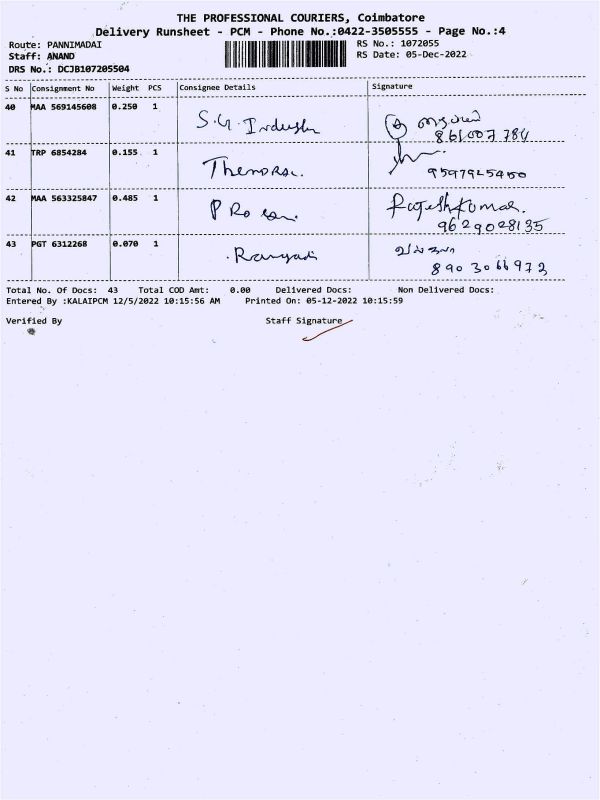 THE PROFESSIONAL COURIERS, Coimbatore
Delivery Runsheet - PCM - Phone No.:0422-3505555 - Page No.:4
Route: PANNIMADAI
RS No.: 1072055
Staff: ANAND
RS Date: 05-Dec-2022
DRS No.: DCJB107205504
S No Consignment No Weight PCS Consignee Details Signature
40 MAA 569145608 0.250 1 S.G.
41 TRP 6854284 0.155 1
9597925400
42 MAA 563325847 0.485 1 Rajeshkumar.
9629028135
43 PGT 6312268 0.070 1
8903066972
Total No. Of Docs: 43 Total COD Amt: 0.00 Delivered Docs: Non Delivered Docs:
Entered By :KALAIPCM 12/5/2022 10:15:56 AM Printed On: 05-12-2022 10:15:59
Verified By Staff Signature